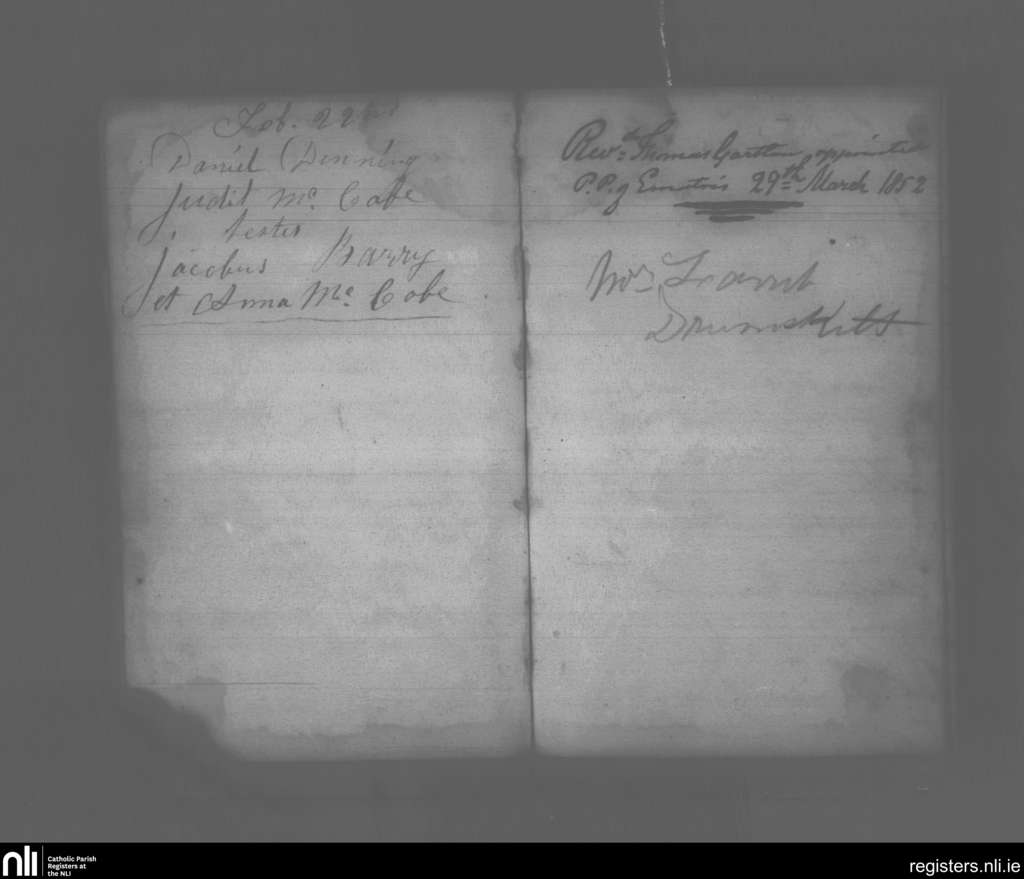 Feb. 22nd
Daniel Denning
Judit Mc. Cabe
testes
Jacobus Barry
et Anna Mc. Cabe
Revd. Thomas Gartlan appointed
P.P. of 29th March 1852
Mrs
nli
Catholic Parish
Registers at
the NLI
registers.nli.ie